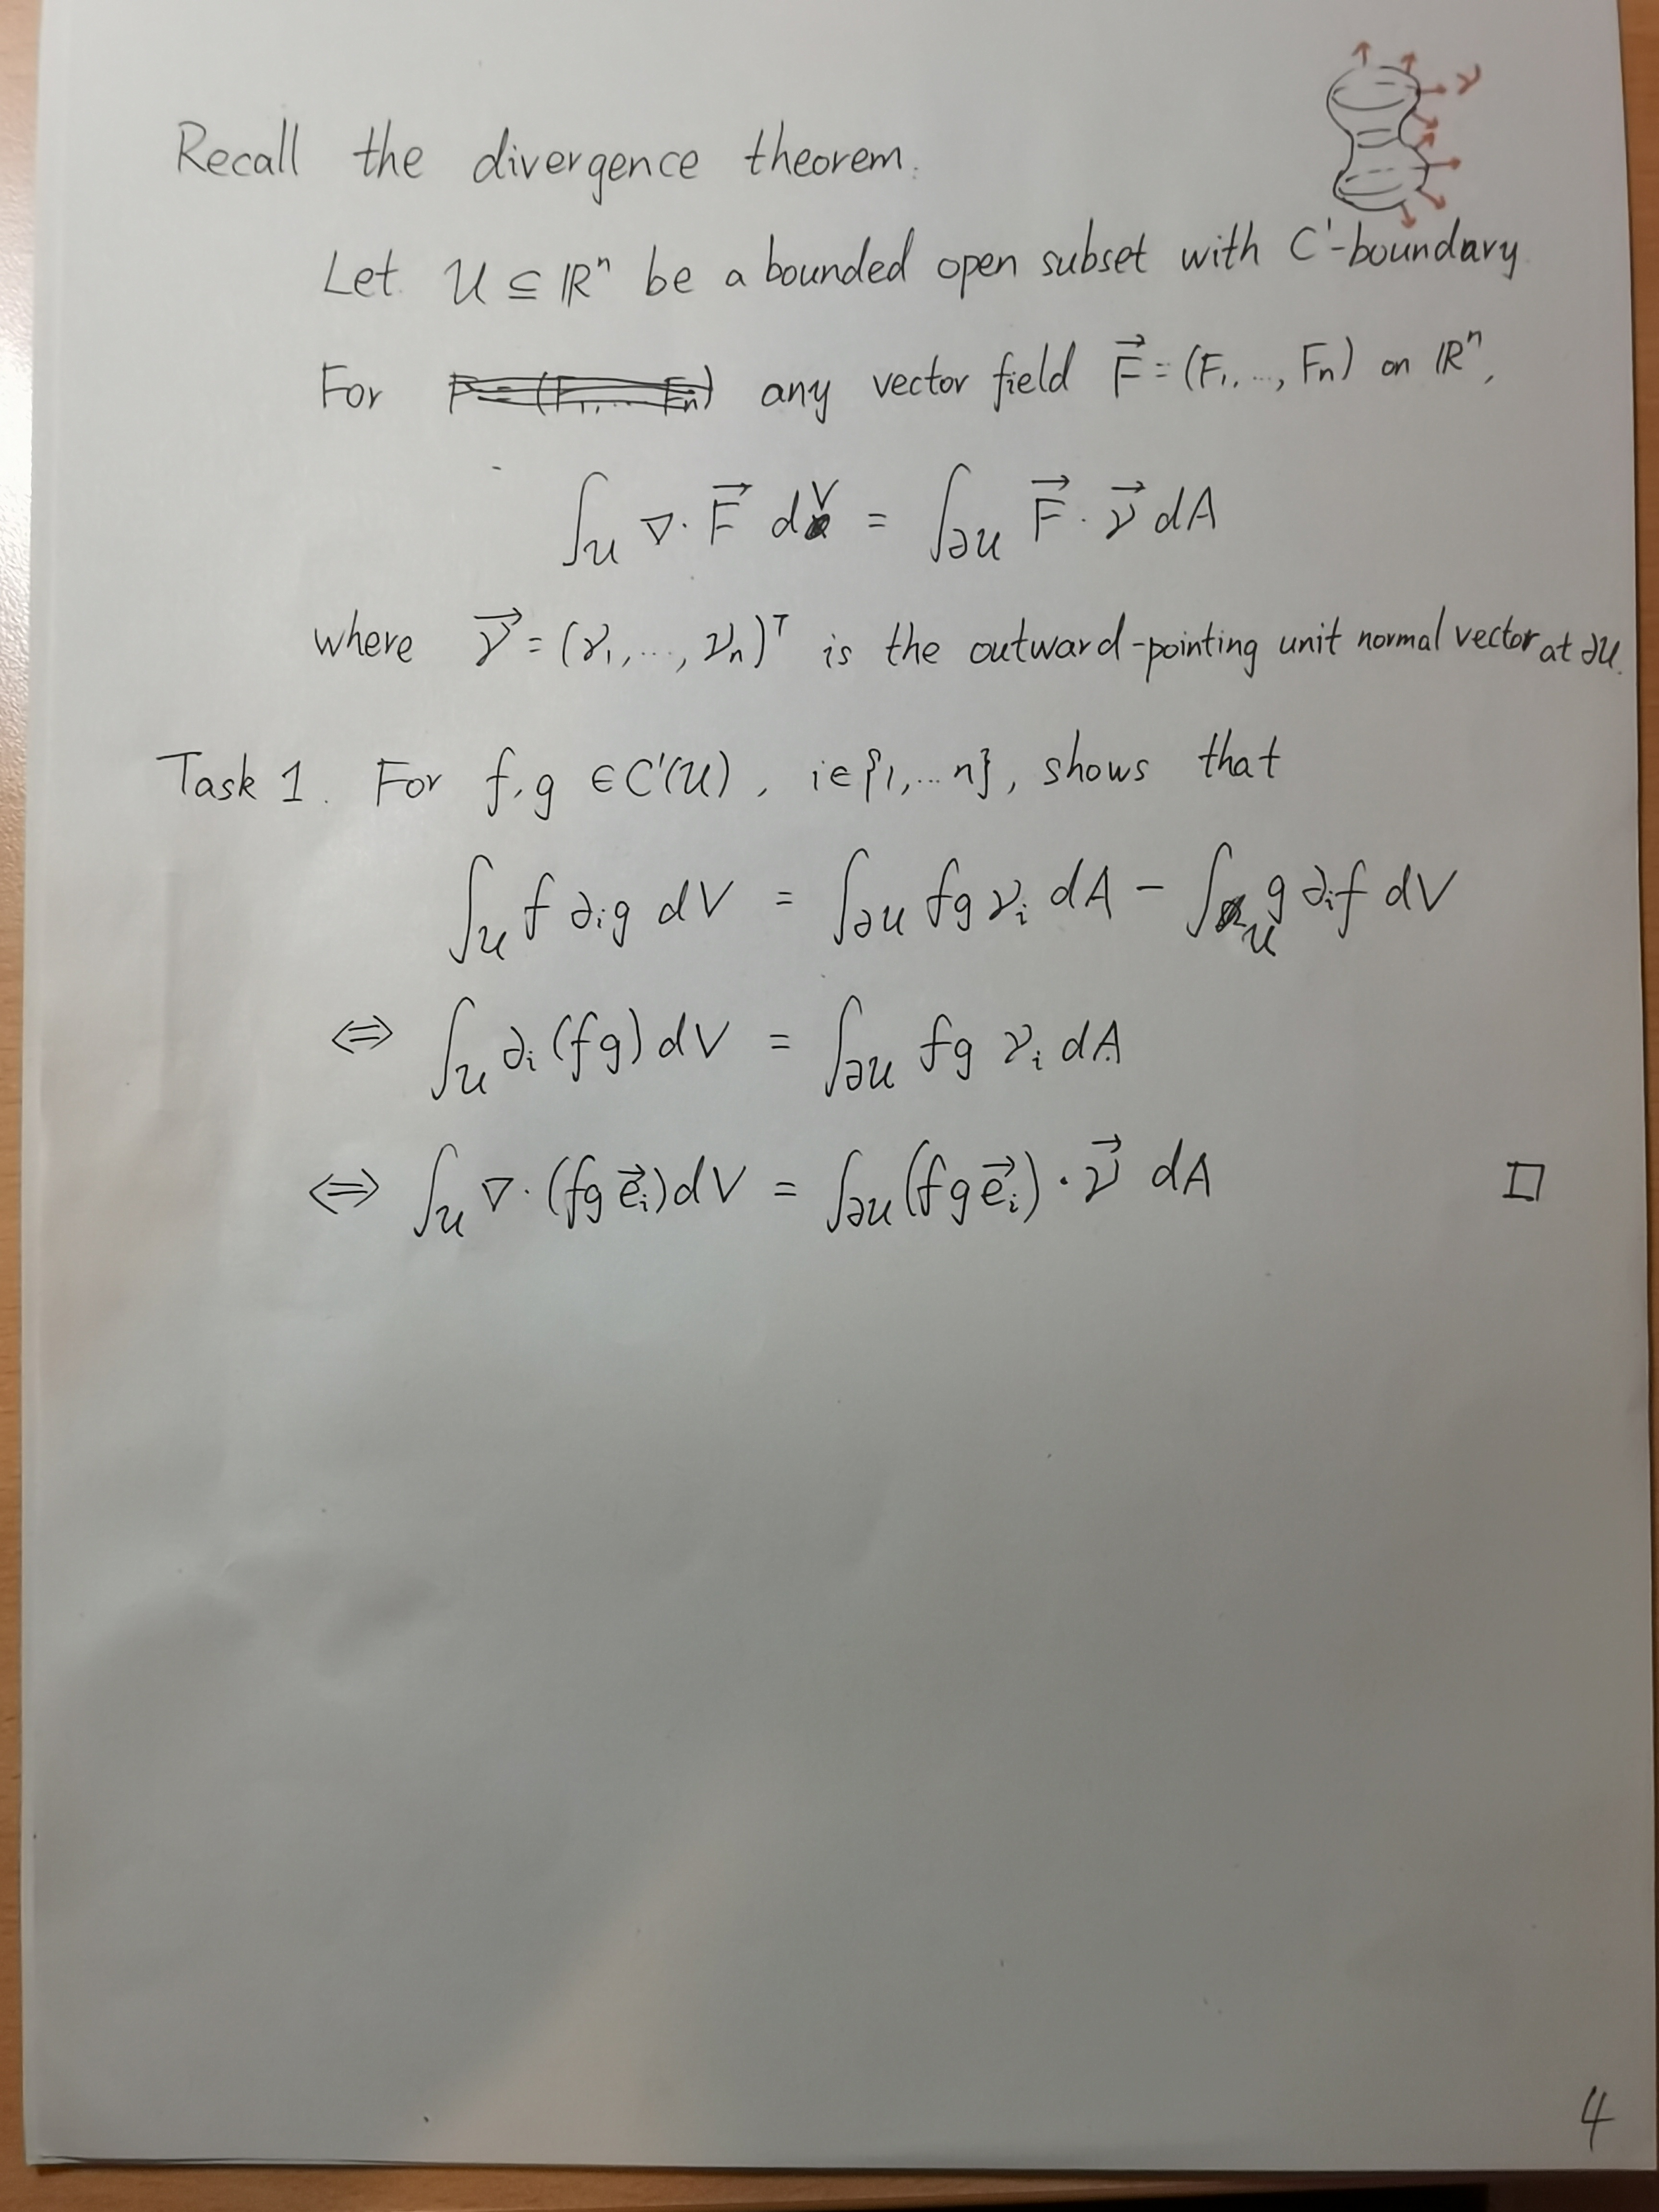 ν
Recall the divergence theorem.
Let U ⊆ ℝⁿ be a bounded open subset with C¹-boundary
For any vector field F⃗ = (F₁, ..., Fₙ) on ℝⁿ,
∫_U ∇· F⃗ dV = ∫_∂U F⃗ · ν⃗ dA
where ν⃗ = (ν₁, ..., νₙ)ᵀ is the outward-pointing unit normal vector at ∂U.
Task 1. For f, g ∈ C¹(U), i ∈ {1, ... n}, shows that
∫_U f ∂ᵢg dV = ∫_∂U fg νᵢ dA − ∫_U g ∂ᵢf dV
⇔ ∫_U ∂ᵢ(fg) dV = ∫_∂U fg νᵢ dA
⇔ ∫_U ∇· (fg e⃗ᵢ) dV = ∫_∂U (fg e⃗ᵢ) · ν⃗ dA □
4